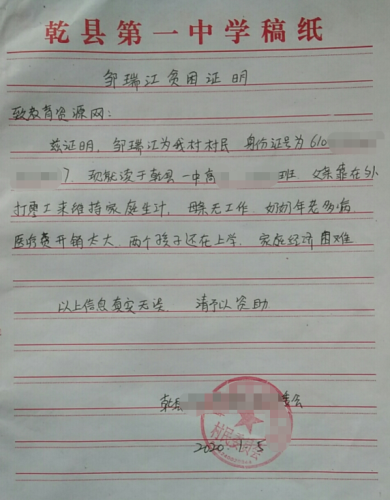 乾县第一中学稿纸
邹瑞江贫困证明
致教育资源网：
兹证明，邹瑞江为我村村民 身份证号为610
7. 现就读于乾县一中高 班 父亲靠在外
打零工来维持家庭生计，母亲无工作，奶奶年老多病
医疗费开销太大，两个孩子还在上学，家庭经济困难
以上信息真实无误 清予以资助
乾县 委会
村民委员会
2020.1.5